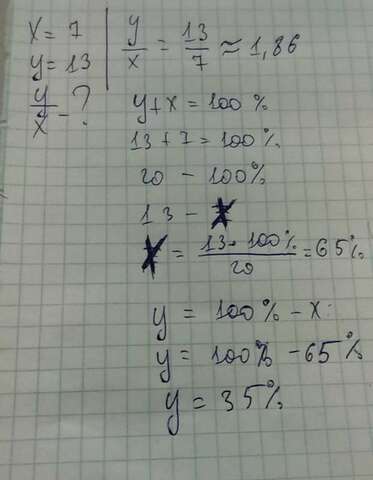 x = 7
y = 13
y/x - ?
y/x = 13/7 ≈ 1,86
y + x = 100 %
13 + 7 = 100 %
20 - 100%
13 - x
x = 13 · 100% / 20 = 65%
y = 100% - x
y = 100% - 65%
y = 35%